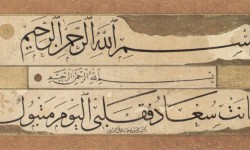 بسم الله الرحمن الرحيم
بسم الله الرحمن الرحيم
بانت سعاد فقلبي اليوم متبول